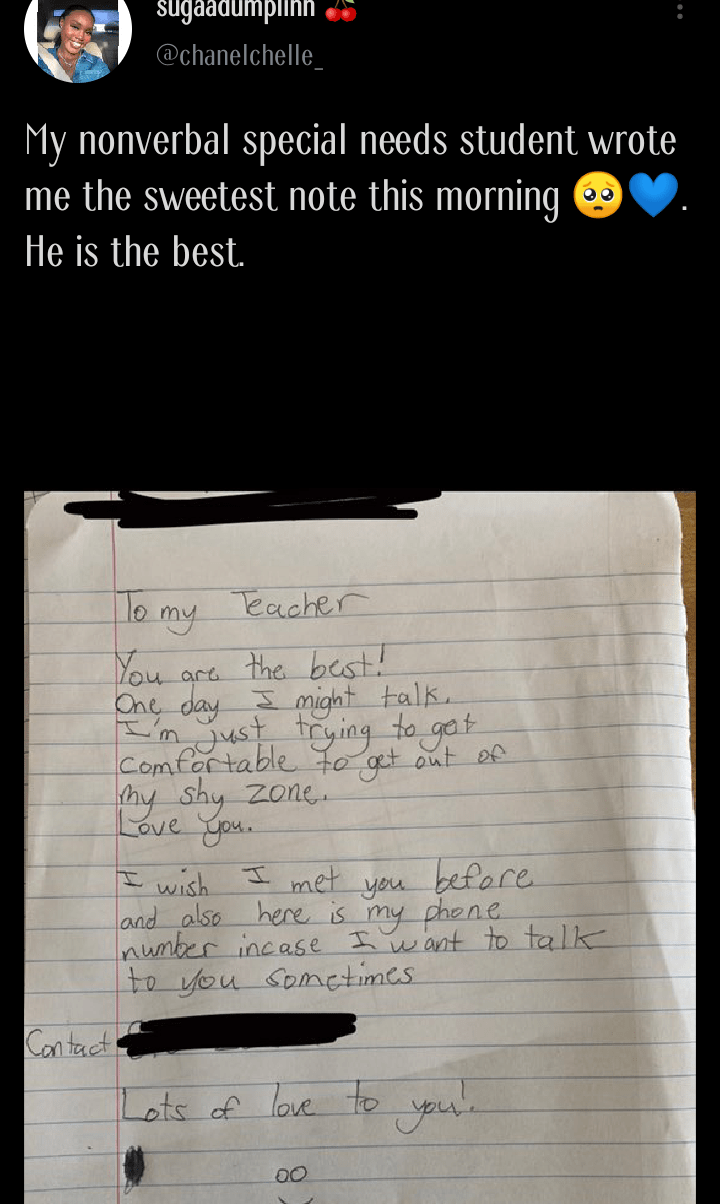 sugaadumplinn 🍒
@chanelchelle_
My nonverbal special needs student wrote
me the sweetest note this morning 🥺💙.
He is the best.
To my Teacher
You are the best!
One day I might talk.
I'm just trying to get
comfortable to get out of
my shy zone.
Love you.
I wish I met you before
and also here is my phone
number incase I want to talk
to you sometimes
Contact
Lots of love to you!